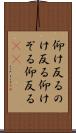 仰け反るの
け反る仰け
ぞる仰反る